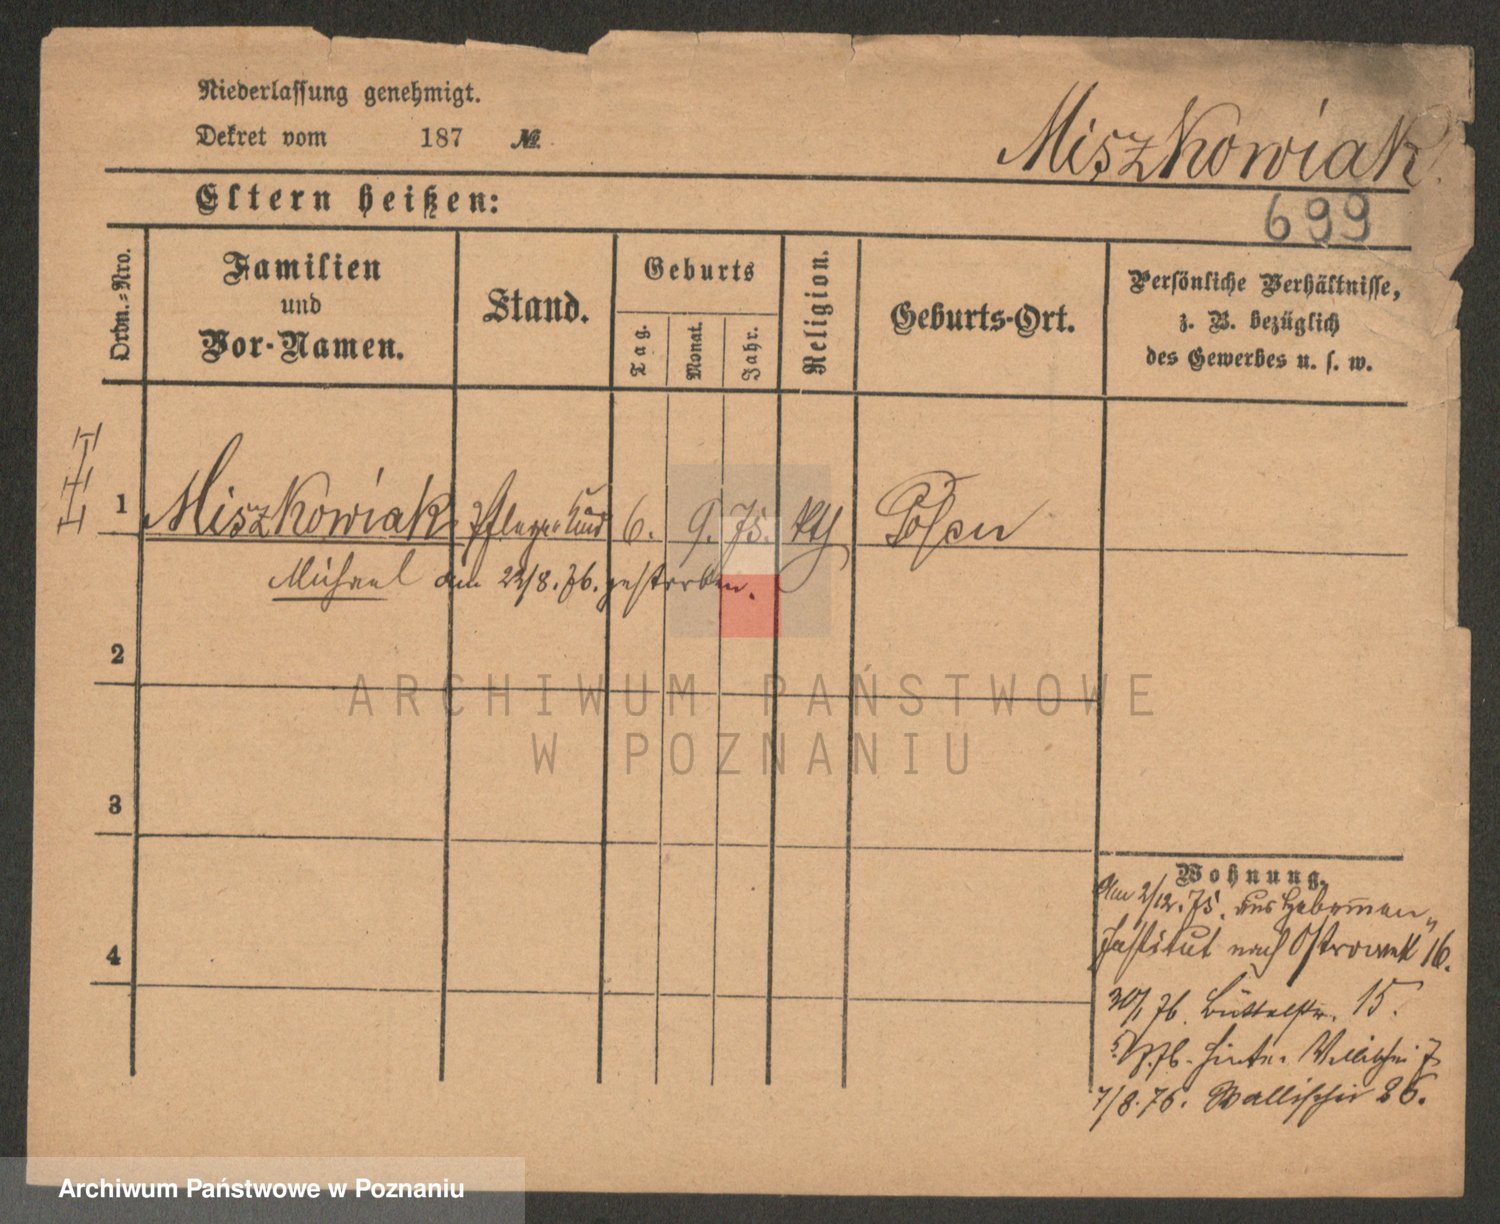 Niederlassung genehmigt.
Dekret vom 187 №.
Miszkowiak
699
Eltern heißen:
Ordn.-Nro.
Familien und Vor-Namen.
Stand.
Geburts
Tag.
Monat.
Jahr.
Religion.
Geburts-Ort.
Persönliche Verhältnisse,
z. B. bezüglich
des Gewerbes u. s. w.
1 Miszkowiak Pflegekind 6. 9. 75. kth Posen
Michael am 22/8. 76. gestorben.
2
3
4
Wohnung.
Am 2/12. 75. aus Hebammen
Institut nach Ostrowek 16.
76. Büttelstr. 15.
76. Hinter Wallischei 7
7/8. 76. Wallischei 26.
ARCHIWUM PAŃSTWOWE
W POZNANIU
Archiwum Państwowe w Poznaniu